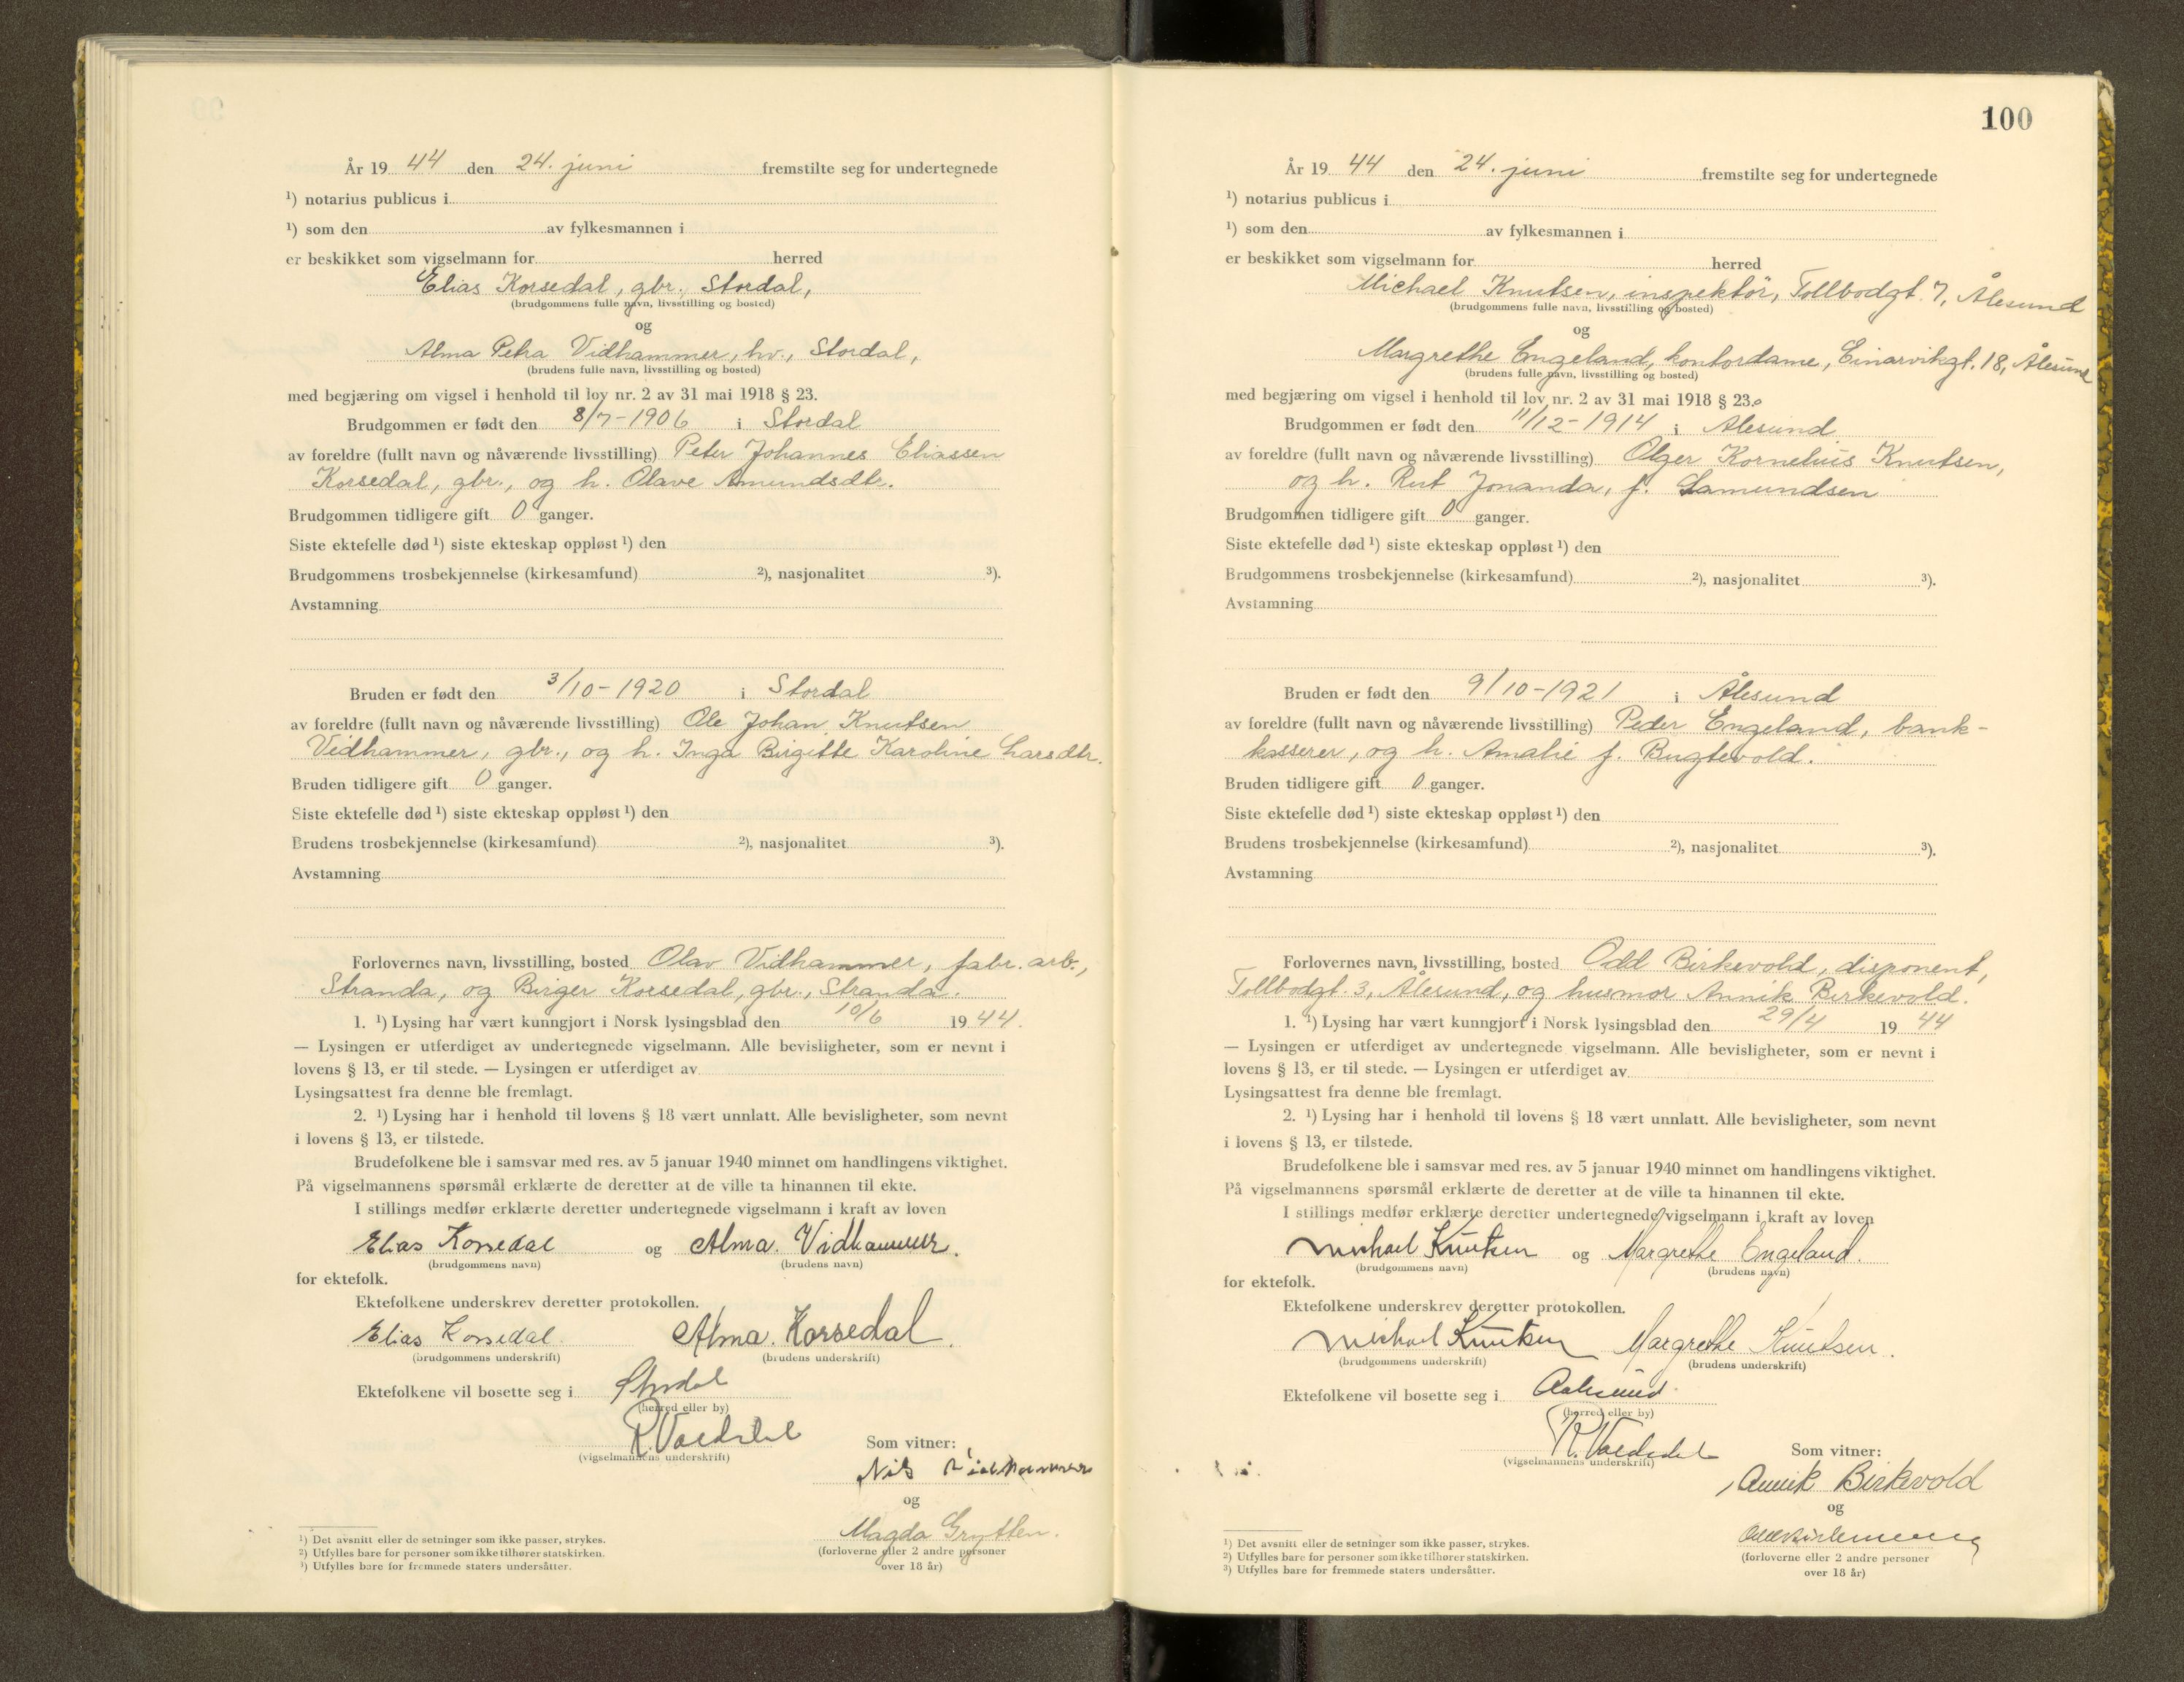 År 19 44 den 24. juni fremstilte seg for undertegnede
¹) notarius publicus i
¹) som den av fylkesmannen i
er beskikket som vigselmann for herred
Elias Korsedal, gbr., Stordal,
(brudgommens fulle navn, livsstilling og bosted)
og
Alma Petra Vidhammer, hv., Stordal,
(brudens fulle navn, livsstilling og bosted)
med begjæring om vigsel i henhold til lov nr. 2 av 31 mai 1918 § 23.
Brudgommen er født den 8/7-1906 i Stordal
av foreldre (fullt navn og nåværende livsstilling) Peter Johannes Eliassen
Korsedal, gbr., og h. Olave Amundsdtr.
Brudgommen tidligere gift 0 ganger.
Siste ektefelle død ¹) siste ekteskap oppløst ¹) den
Brudgommens trosbekjennelse (kirkesamfund) ²), nasjonalitet ³).
Avstamning
Bruden er født den 3/10-1920 i Stordal
av foreldre (fullt navn og nåværende livsstilling) Ole Johan Knutsen
Vidhammer, gbr., og h. Inga Birgitte Karoline Larsdtr.
Bruden tidligere gift 0 ganger.
Siste ektefelle død ¹) siste ekteskap oppløst ¹) den
Brudens trosbekjennelse (kirkesamfund) ²), nasjonalitet ³).
Avstamning
Forlovernes navn, livsstilling, bosted Olav Vidhammer, fabr. arb.,
Stranda, og Birger Korsedal, gbr., Stranda.
1. ¹) Lysing har vært kunngjort i Norsk lysingsblad den 10/6 19 44.
— Lysingen er utferdiget av undertegnede vigselmann. Alle bevisligheter, som er nevnt i
lovens § 13, er til stede. — Lysingen er utferdiget av
Lysingsattest fra denne ble fremlagt.
2. ¹) Lysing har i henhold til lovens § 18 vært unnlatt. Alle bevisligheter, som nevnt
i lovens § 13, er tilstede.
Brudefolkene ble i samsvar med res. av 5 januar 1940 minnet om handlingens viktighet.
På vigselmannens spørsmål erklærte de deretter at de ville ta hinannen til ekte.
I stillings medfør erklærte deretter undertegnede vigselmann i kraft av loven
Elias Korsedal og Alma. Vidhammer.
(brudgommens navn) (brudens navn)
for ektefolk.
Ektefolkene underskrev deretter protokollen.
Elias Korsedal. Alma. Korsedal.
(brudgommens underskrift) (brudens underskrift)
Ektefolkene vil bosette seg i Stordal
(herred eller by)
(vigselmannens underskrift)
Som vitner:
Nils Vidhammer
og
Magda Grytten.
(forloverne eller 2 andre personer
over 18 år)
¹) Det avsnitt eller de setninger som ikke passer, strykes.
²) Utfylles bare for personer som ikke tilhører statskirken.
³) Utfylles bare for fremmede staters undersåtter.
100
År 19 44 den 24. juni fremstilte seg for undertegnede
¹) notarius publicus i
¹) som den av fylkesmannen i
er beskikket som vigselmann for herred
Michael Knutsen, inspektör, Tollbodgt. 7, Ålesund
(brudgommens fulle navn, livsstilling og bosted)
og
Margrethe Engeland, kontordame, Einarvikgt. 18, Ålesund
(brudens fulle navn, livsstilling og bosted)
med begjæring om vigsel i henhold til lov nr. 2 av 31 mai 1918 § 23.
Brudgommen er født den 11/12-1914 i Ålesund
av foreldre (fullt navn og nåværende livsstilling) Olger Kornelius Knutsen,
og h. Rut Jonanda, f. Samundsen
Brudgommen tidligere gift 0 ganger.
Siste ektefelle død ¹) siste ekteskap oppløst ¹) den
Brudgommens trosbekjennelse (kirkesamfund) ²), nasjonalitet ³).
Avstamning
Bruden er født den 9/10-1921 i Ålesund
av foreldre (fullt navn og nåværende livsstilling) Peder Engeland, bank-
kasserer, og h. Amalie f. Bugtevold.
Bruden tidligere gift 0 ganger.
Siste ektefelle død ¹) siste ekteskap oppløst ¹) den
Brudens trosbekjennelse (kirkesamfund) ²), nasjonalitet ³).
Avstamning
Forlovernes navn, livsstilling, bosted Odd Birkevold, disponent,
Tollbodgt. 3, Ålesund, og husmor Annik Birkevold.
1. ¹) Lysing har vært kunngjort i Norsk lysingsblad den 29/4 19 44
— Lysingen er utferdiget av undertegnede vigselmann. Alle bevisligheter, som er nevnt i
lovens § 13, er til stede. — Lysingen er utferdiget av
Lysingsattest fra denne ble fremlagt.
2. ¹) Lysing har i henhold til lovens § 18 vært unnlatt. Alle bevisligheter, som nevnt
i lovens § 13, er tilstede.
Brudefolkene ble i samsvar med res. av 5 januar 1940 minnet om handlingens viktighet.
På vigselmannens spørsmål erklærte de deretter at de ville ta hinannen til ekte.
I stillings medfør erklærte deretter undertegnede vigselmann i kraft av loven
Michael Knutsen og Margrethe Engeland.
(brudgommens navn) (brudens navn)
for ektefolk.
Ektefolkene underskrev deretter protokollen.
Michael Knutsen Margrethe Knutsen.
(brudgommens underskrift) (brudens underskrift)
Ektefolkene vil bosette seg i Aalesund.
(herred eller by)
(vigselmannens underskrift)
Som vitner:
Annik Birkevold
og
(forloverne eller 2 andre personer
over 18 år)
¹) Det avsnitt eller de setninger som ikke passer, strykes.
²) Utfylles bare for personer som ikke tilhører statskirken.
³) Utfylles bare for fremmede staters undersåtter.